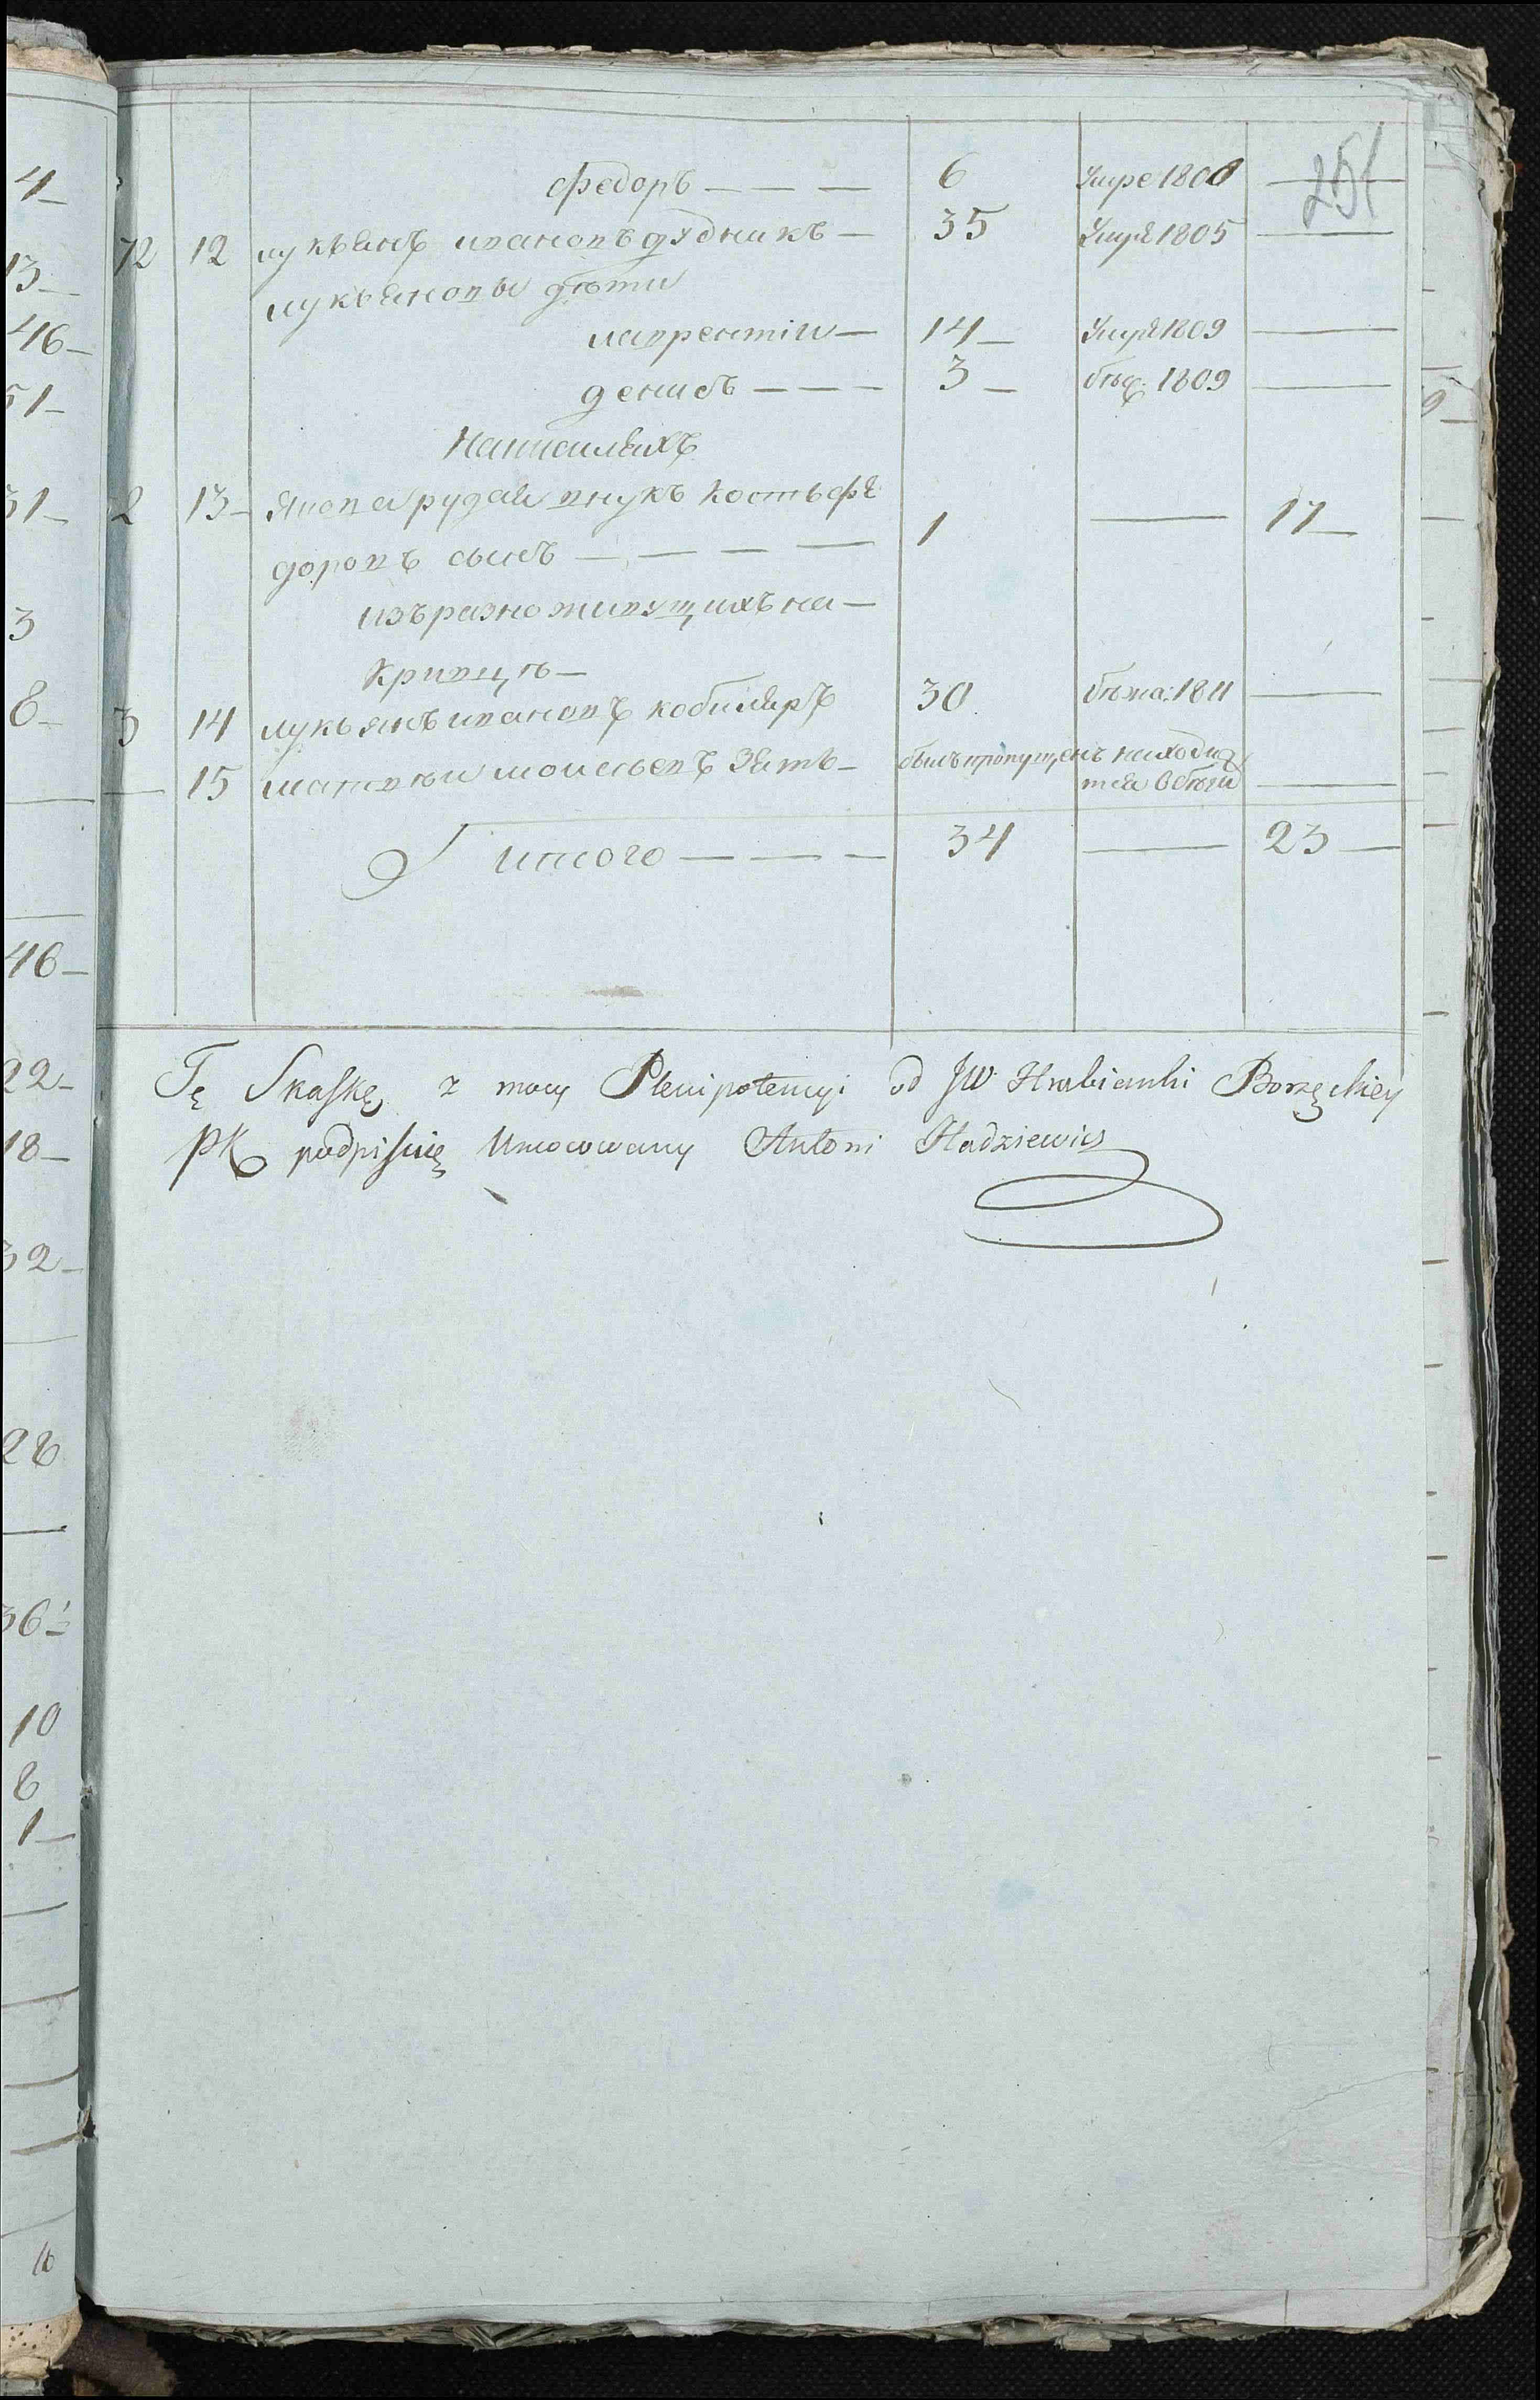 251
федоръ — — — 6 умре 1800 —
72 12 лукьянъ ивановъ дудникъ — 35 умре 1805 —
лукьяновы дѣти
лаврентіи — 14 — умре 1809 —
денисъ — — — 3 — бѣж: 1809 —
2 13 — якова рудая внукъ кость фе
доровъ сынъ — — — — 1 — 17 —
изъ разно живущихъ на —
кривцѣ —
3 14 лукьянъ ивановъ 30 бѣжа: 1811 —
— 15 матвѣи зять — былъ пропущенъ находит
тся в бѣги —
итого — — — 34 — 23 —
Tę Skaskę z mocy Plenipotencyi od JW Hrabianki Borzęckiey
PK podpisuię Umocowany Antoni Hadziewicz
4 —
13 —
46 —
51 —
31 —
3
8 —
46 —
22 —
18 —
32 —
28
36
10
8
1 —